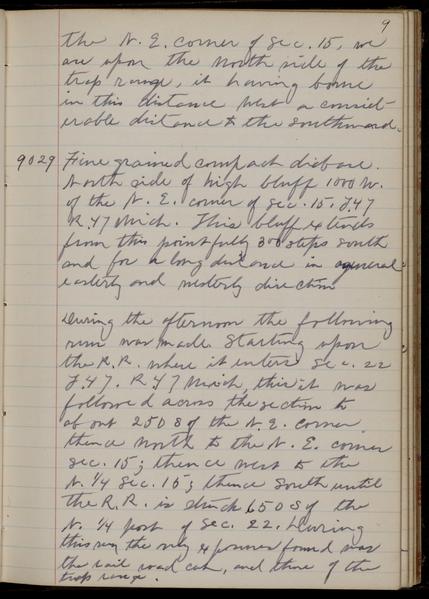 9
the N. E. corner of Sec. 15, we
are upon the north side of the
trap range, it having borne
in this distance West a consid-
erable distance to the southward.
9029 Fine grained compact diabase.
North side of high bluff 1000 W.
of the N. E. corner of Sec. 15, T.47
R.47 Mich. This bluff extends
from this point fully 300 steps south
and for a long distance in a general
easterly and westerly direction
During the afternoon the following
run was made. Starting upon
the R.R. where it enters Sec. 22
T.47. R 47 Mich, this it was
followed across the section to
about 250 S of the N. E. corner,
thence north to the N. E. corner
Sec. 15; thence west to the
N. 1/4 Sec. 15; thence South until
the R.R. is struck 650 S of the
N. 1/4 post of Sec. 22. During
this run the only exposures found was
the rail road cut, and those of the
trap range.